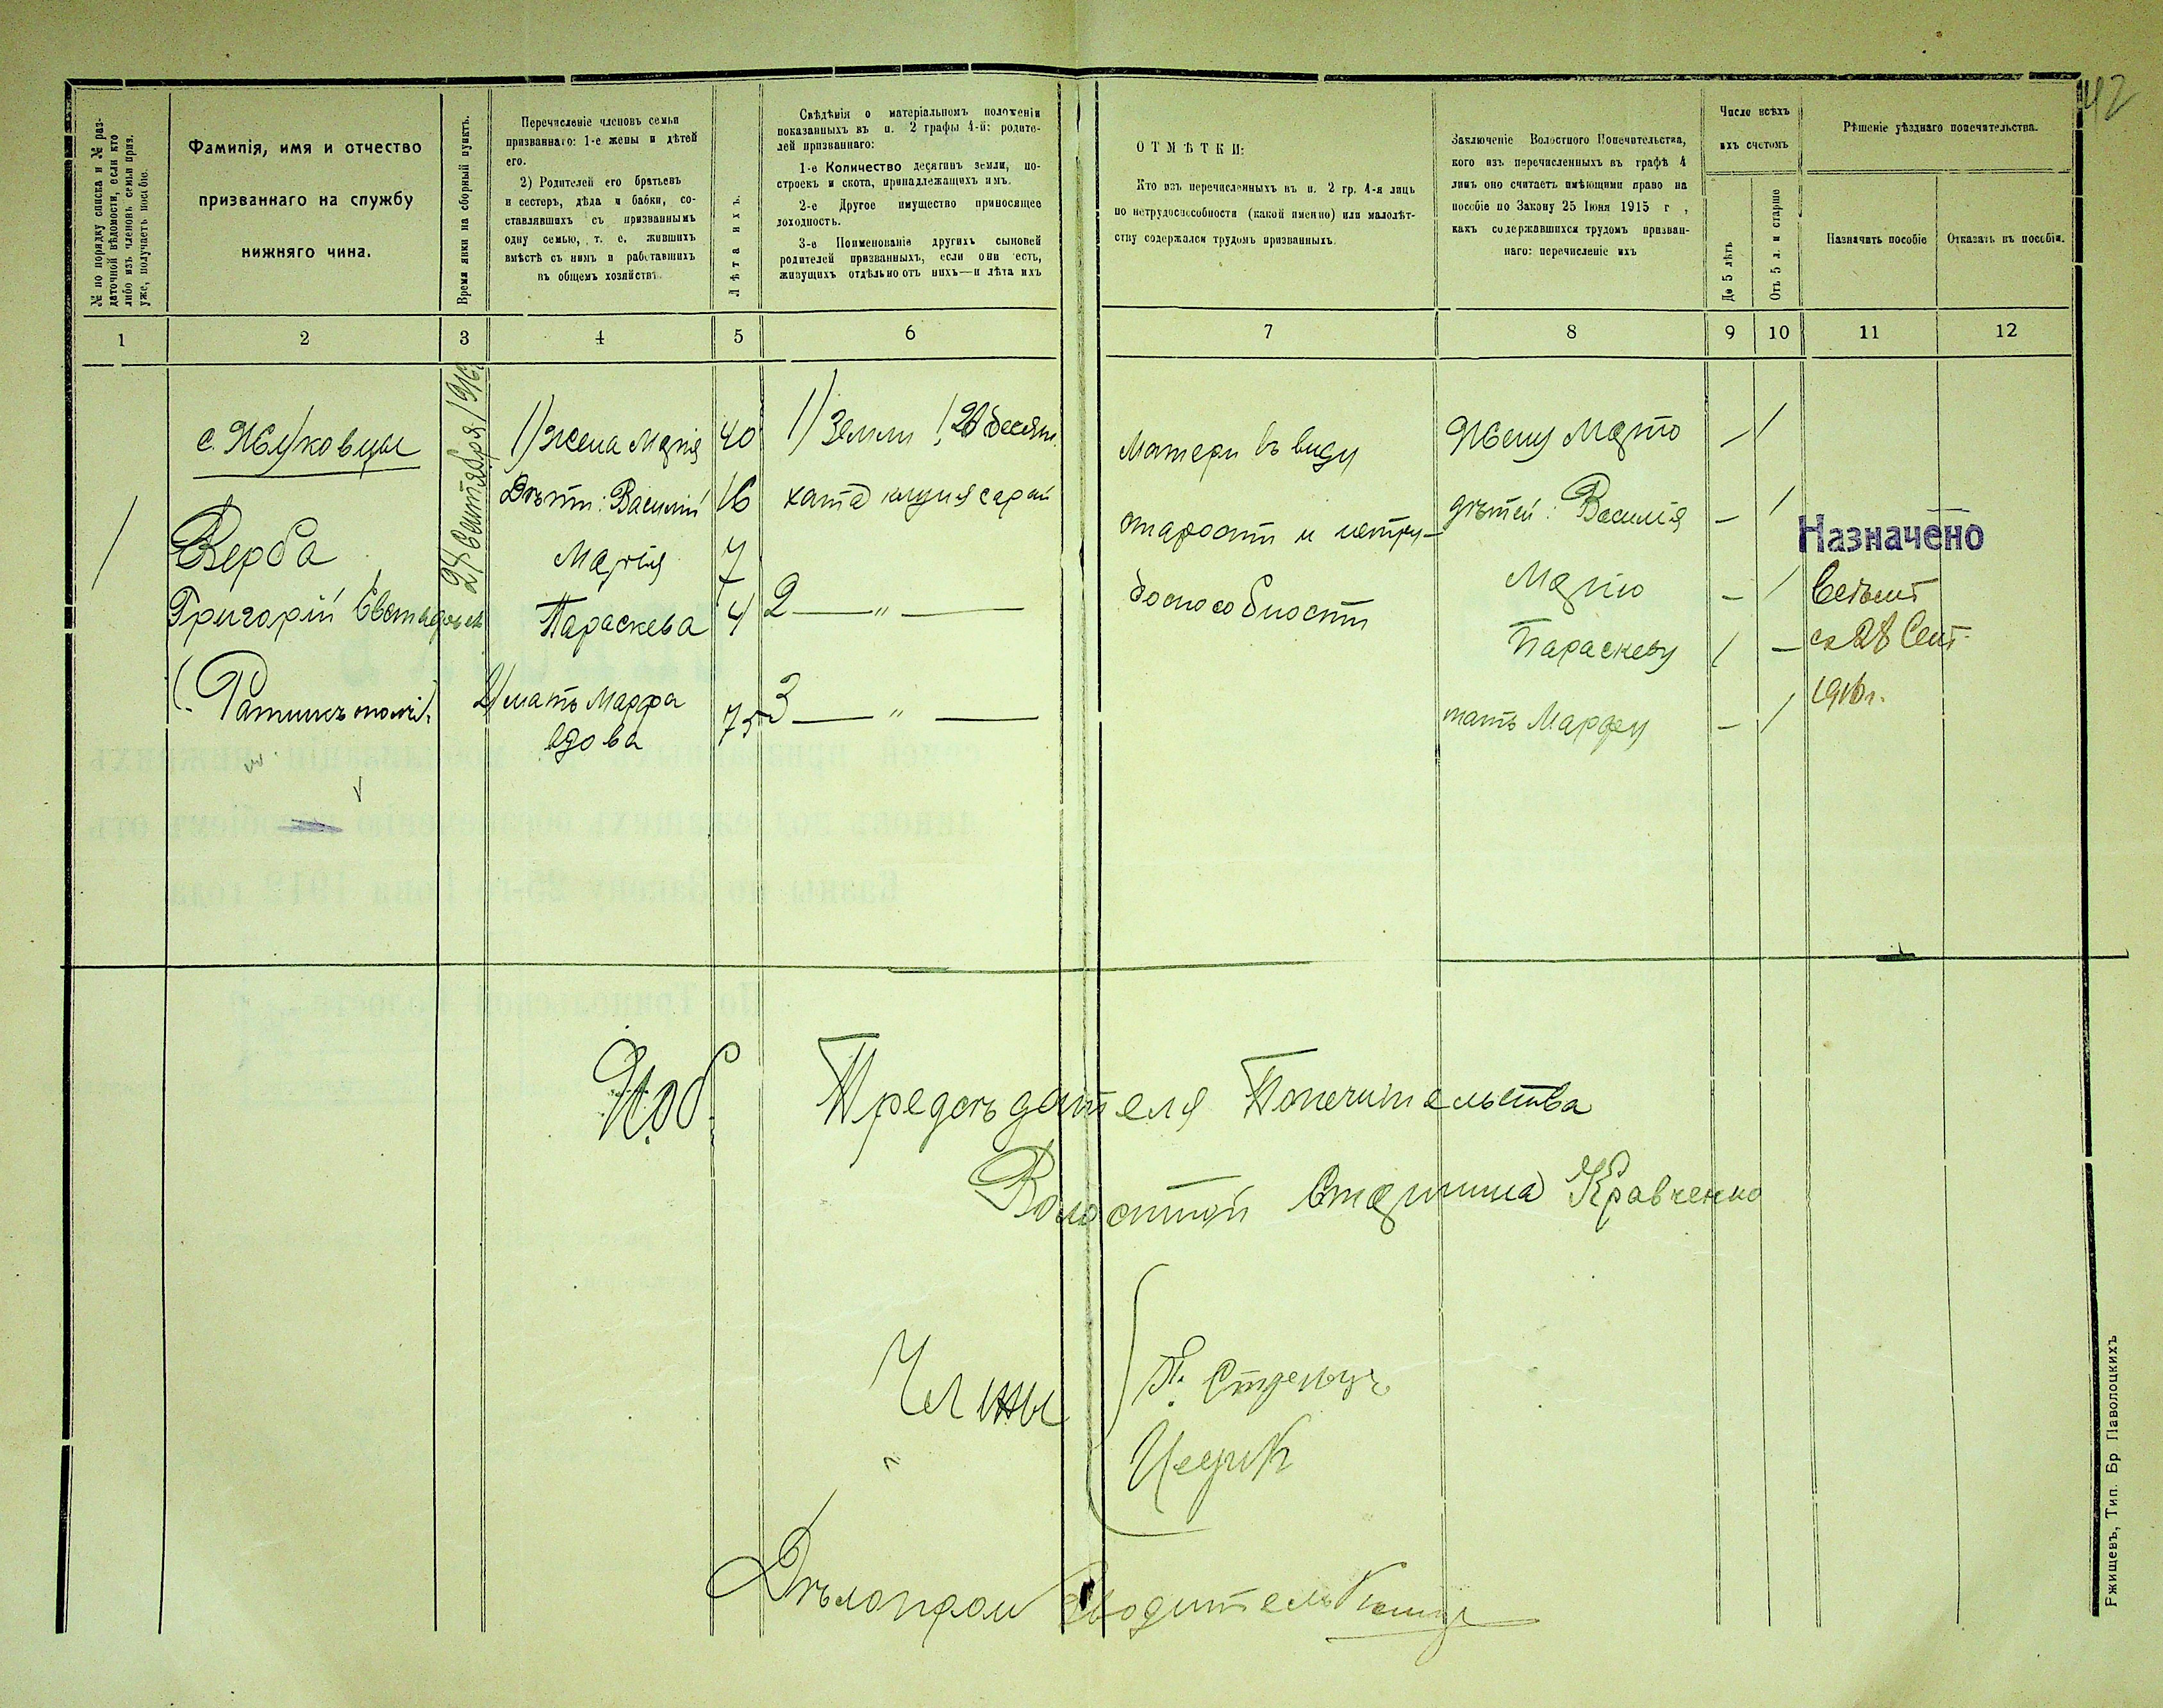 42
№ по порядку списка и № раз-
даточной вѣдомости, если кто
либо изъ членовъ семьи приз.
уже, получаетъ пособіе.
Фамилія, имя и отчество
призваннаго на службу
нижняго чина.
Время явки на сборный пунктъ.
Перечисленіе членовъ семьи
призваннаго: 1-е жены и дѣтей
его.
2) Родителей его братьевъ
и сестеръ, дѣда и бабки, со-
ставлявшихъ съ призваннымъ
одну семью, т. е. жившихъ
вмѣстѣ съ нимъ и работавшихъ
въ общемъ хозяйствѣ
Лѣта ихъ.
Свѣдѣнія о матеріальномъ положеніи
показанныхъ въ п. 2 графы 4-й: родите-
лей призваннаго:
1-е Количество десятинъ земли, по-
строекъ и скота, принадлежащихъ имъ.
2-е Другое имущество приносящее
доходность.
3-е Поименованіе другихъ сыновей
родителей призванныхъ, если они есть,
живущихъ отдѣльно отъ нихъ—и лѣта ихъ
ОТМѢТКИ:
Кто изъ перечисленныхъ въ п. 2 гр. 4-я лицъ
по нетрудоспособности (какой именно) или малолѣт-
ству содержался трудомъ призванныхъ.
Заключеніе Волостного Попечительства,
кого изъ перечисленныхъ въ графѣ 4
лицъ оно считаетъ имѣющими право на
пособіе по Закону 25 Іюня 1915 г ,
какъ содержавшихся трудомъ призван-
наго: перечисленіе ихъ
Число всѣхъ
ихъ счетомъ
До 5 лѣтъ
Отъ 5 л. и старше
Рѣшеніе уѣзднаго попечительства.
Назначить пособіе
Отказать въ пособіи.
1 2 3 4 5 6 7 8 9 10 11 12
с. Жуковцы
24 Сентября 1916
1) жена Марія 40 1) Земли 1,20 десят.
Матери въ виду
Жену Марію — 1
Дѣти: Василій 16 хата клуня сарай
старости и нетру-
дѣтей: Василія — 1
Назначено
1
Верба
Марія 7
доспособности
Марію — 1
Григорій Евстафьев
Параскева 4
2 — „ —
Параскеву 1 —
съ 28 Сент.
1916 г.
2) мать Марфа
вдова
75
3 — „ —
мать Марфу — 1
И.об. Предсѣдателя Попечительства
Волостной Старшина Кравченко
Члены
„
Дѣлопроизводитель
Ржищевъ, Тип. Бр Паволоцкихъ